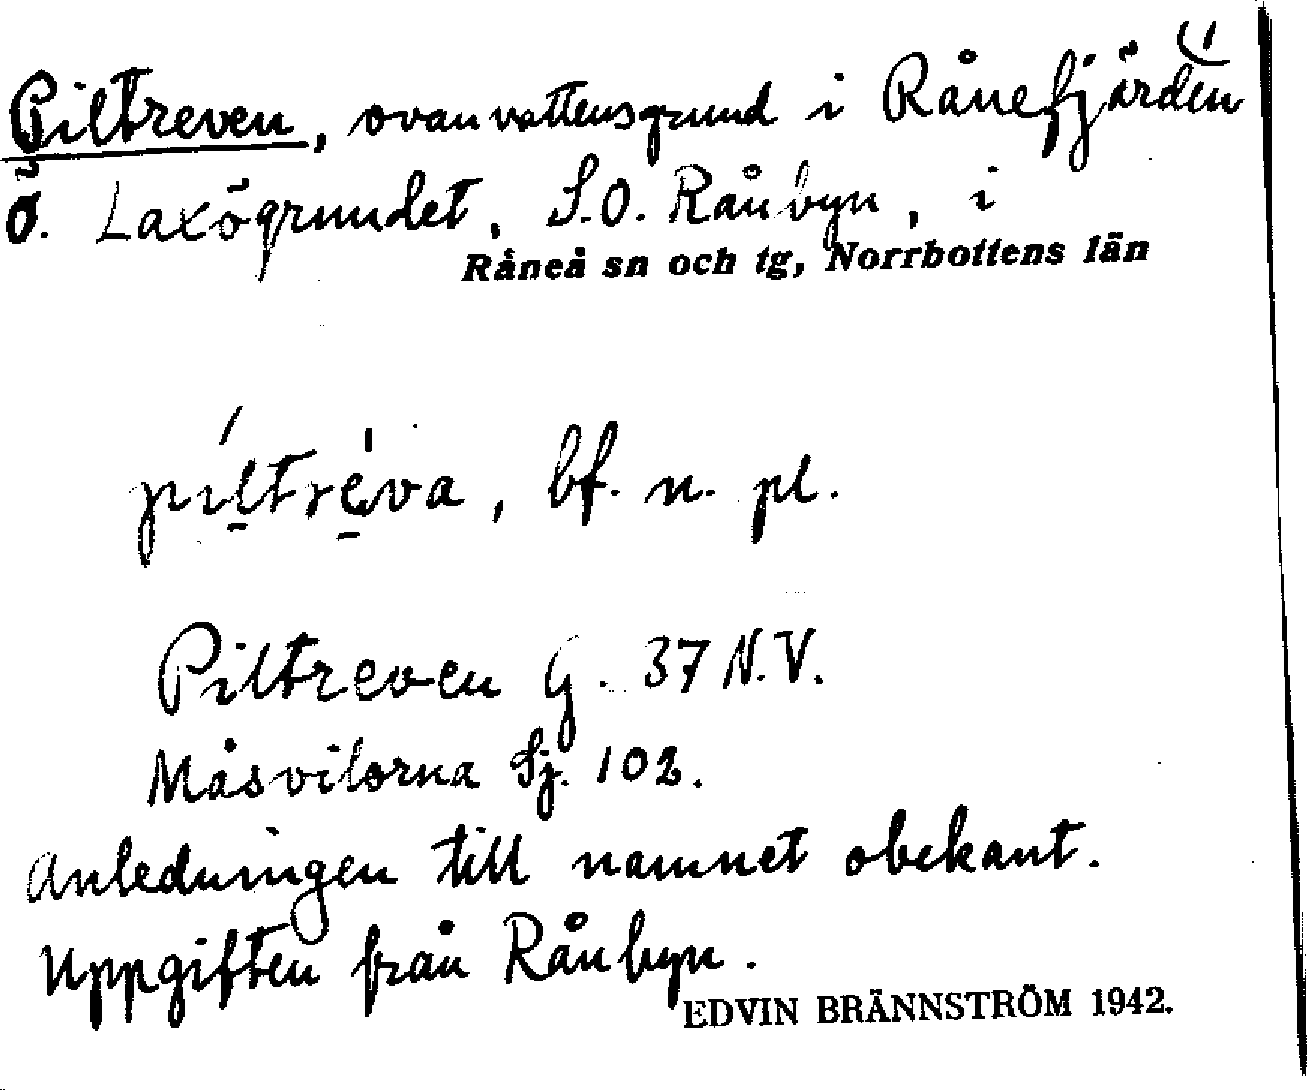 Piltreven, ovanvattensgrund i Rånefjärden
Ö. Laxögrundet, S.O. Rånbyn, i
Råneå sn och tg, Norrbottens län
piltréva, bf. n. pl.
Piltreven G. 37 N.V.
Måsvilorna Sj. 102.
Anledningen till namnet obekant.
Uppgiften från Rånbyn.
EDVIN BRÄNNSTRÖM 1942.